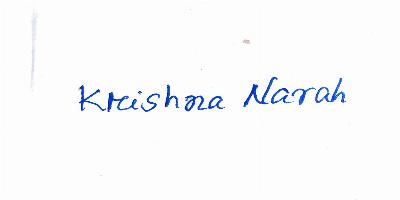 Krishna Narah